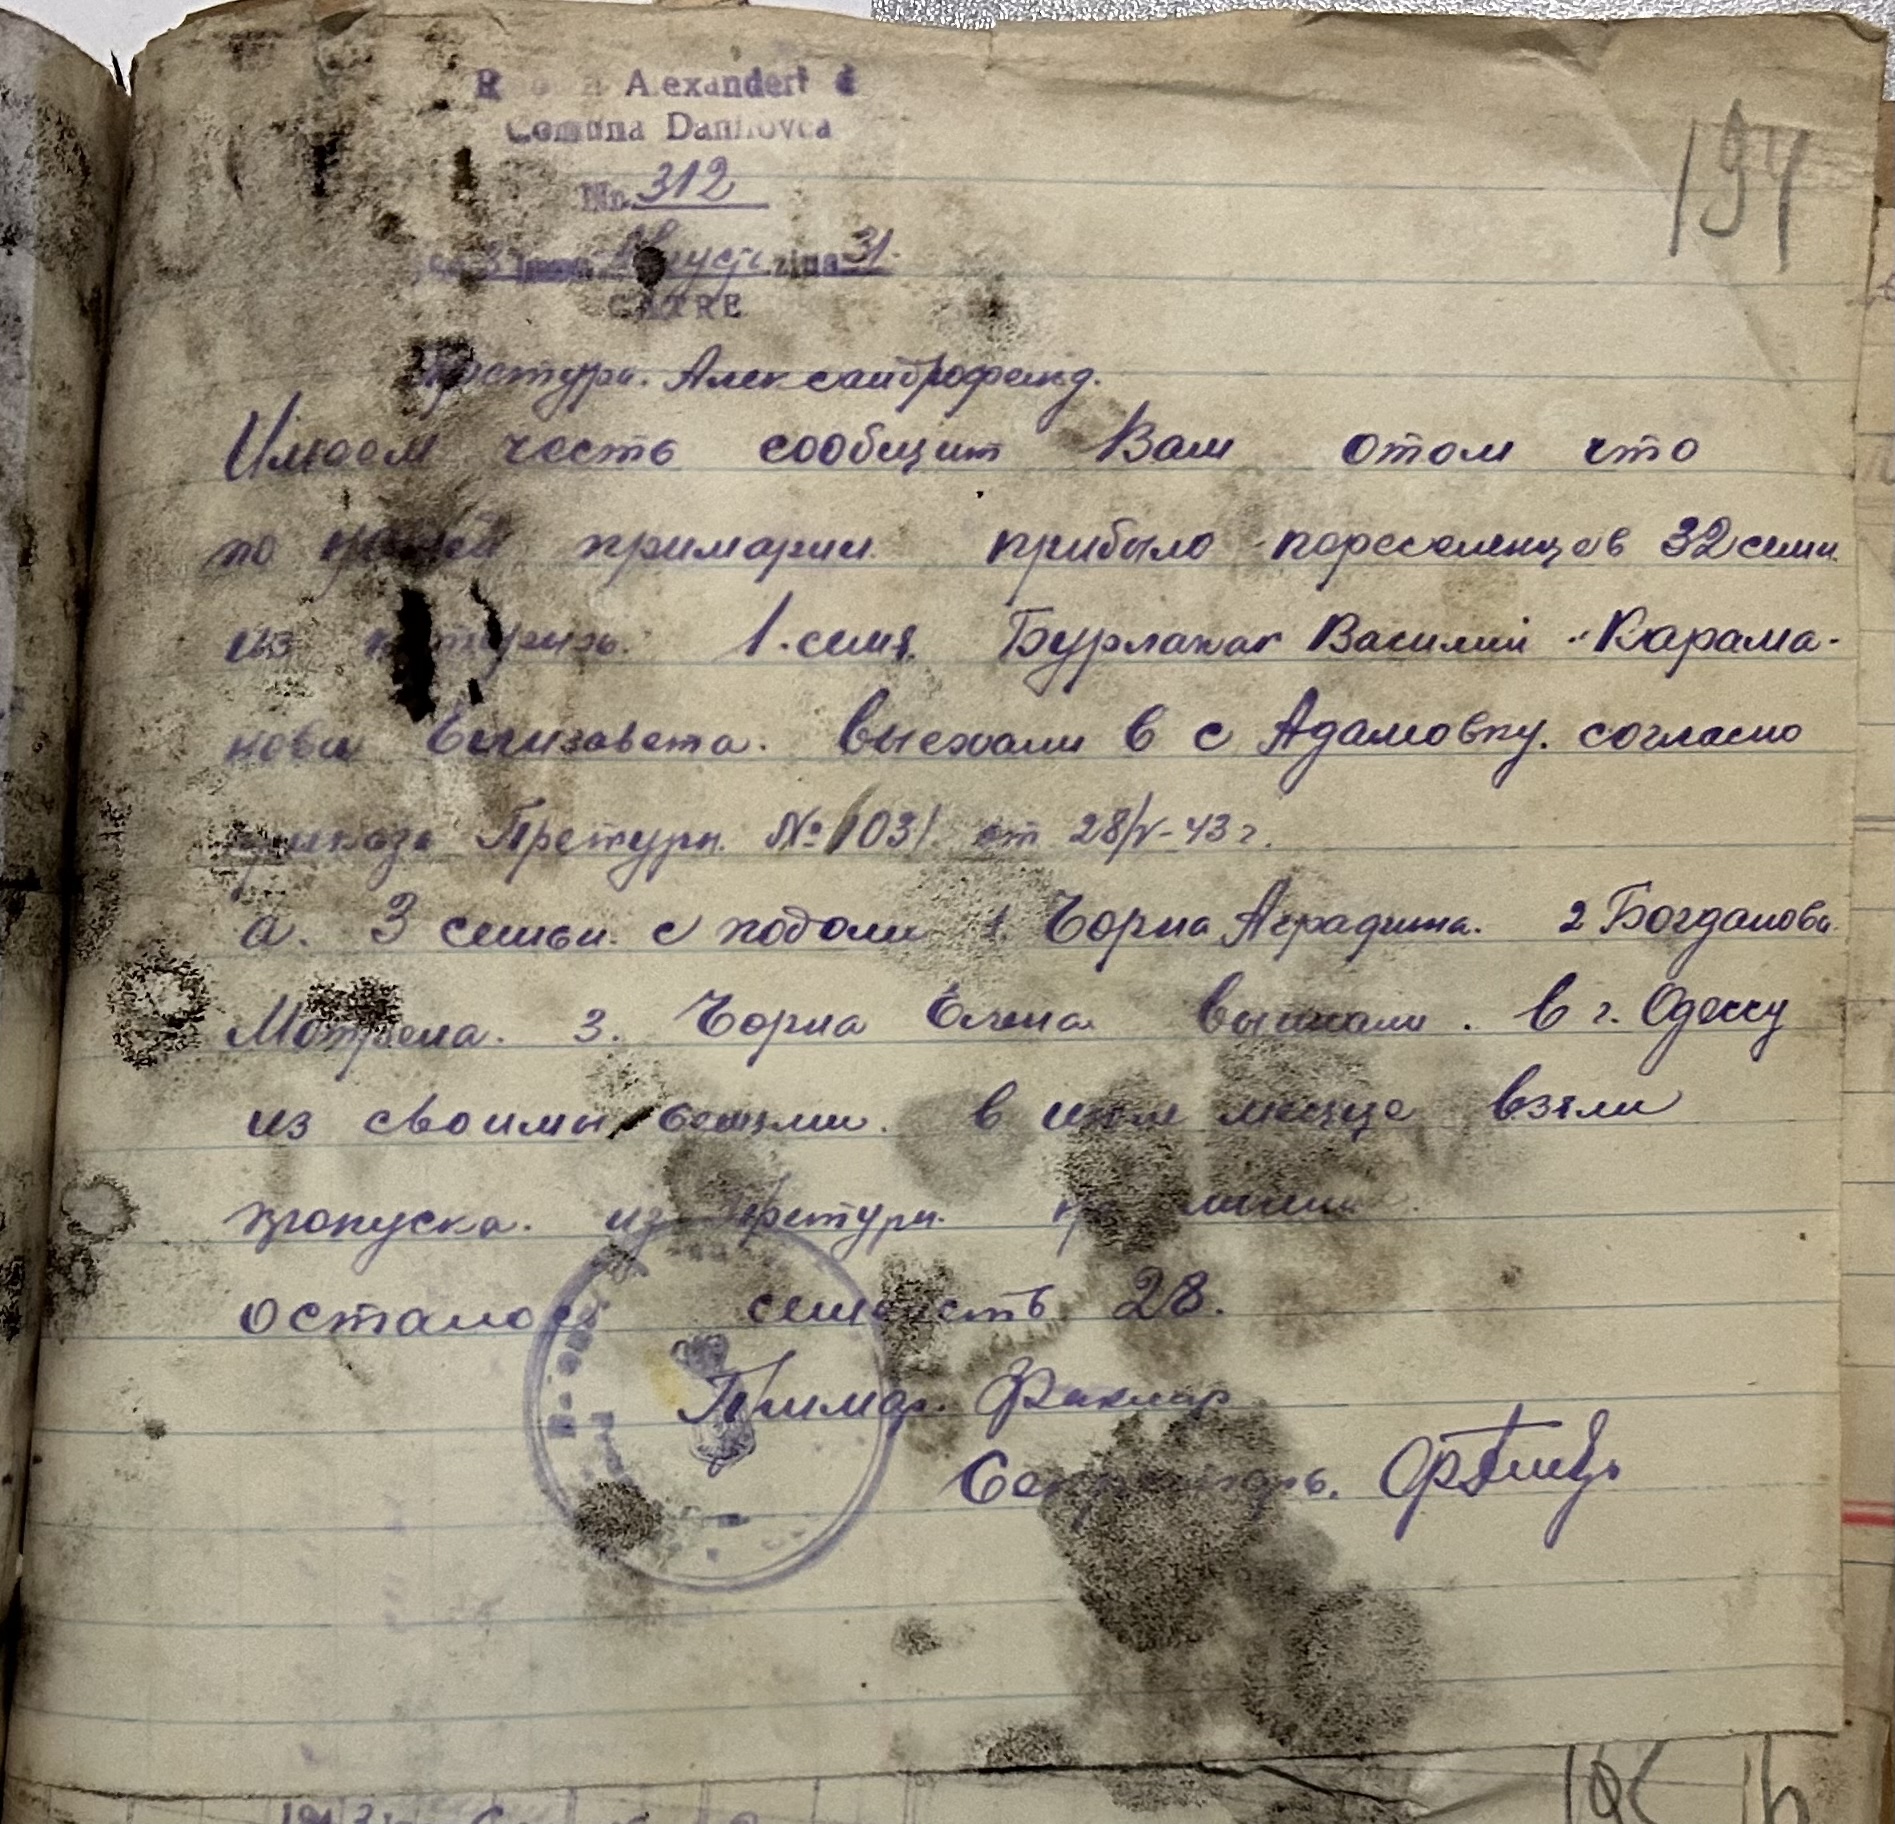 Alexanderf
Comuna Danilovca
No. 312
Август ziua 31.
CATRE
194
Претури. Александрофельд.
Имеем честь сообщит Вам отом что
по нашей примарии прибыло пореселенцев 32 семи
из 1. семя. Бурлакак Василий - Карама-
нова Елизавета. выехали в с Адамовку. согласно
приказа Претури. № 1031 от 28/V-43 г.
а. 3 семьи. с подоли 1 Чорна Аграфина. 2 Богданова
Мотрена. 3. Чорна Елена в г. Одессу
из своимы вещими. в июле месяце взяли
пропуска. из Претури.
осталось семейств 28.
Примар. Факлар
Секретарь.